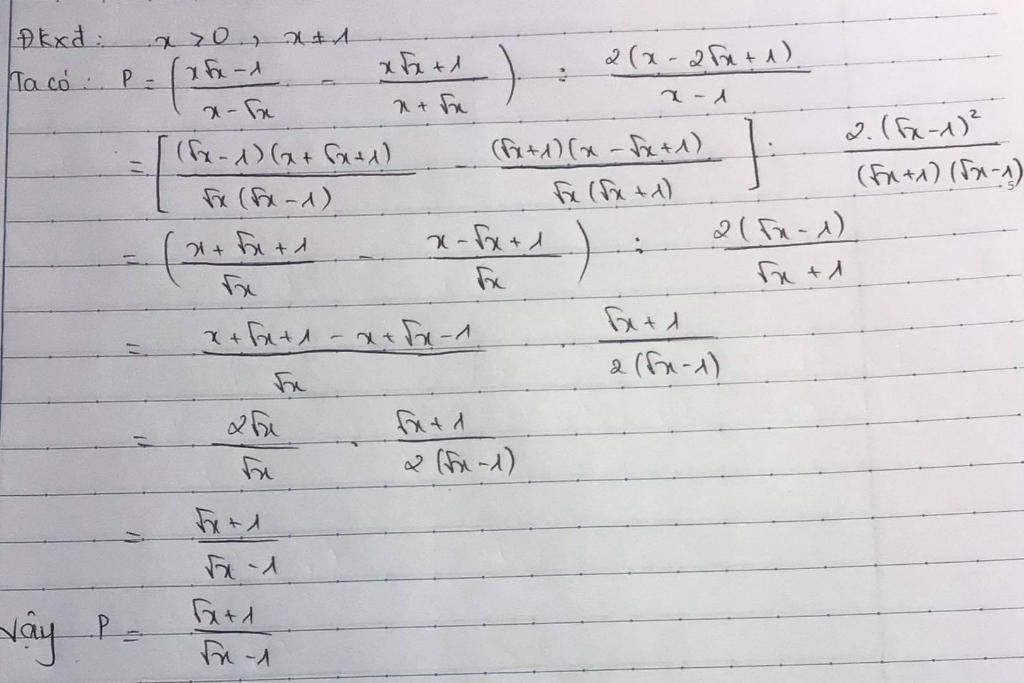 Đkxđ: x > 0, x ≠ 1
Ta có: P = ( (x√x - 1)/(x - √x) - (x√x + 1)/(x + √x) ) : 2(x - 2√x + 1)/(x - 1)
= [ (√x - 1)(x + √x + 1)/(√x(√x - 1)) - (√x + 1)(x - √x + 1)/(√x(√x + 1)) ] : 2.(√x - 1)²/((√x + 1)(√x - 1))
= ( (x + √x + 1)/√x - (x - √x + 1)/√x ) : 2(√x - 1)/(√x + 1)
= (x + √x + 1 - x + √x - 1)/√x . (√x + 1)/(2(√x - 1))
= 2√x/√x . (√x + 1)/(2(√x - 1))
= (√x + 1)/(√x - 1)
Vậy P = (√x + 1)/(√x - 1)